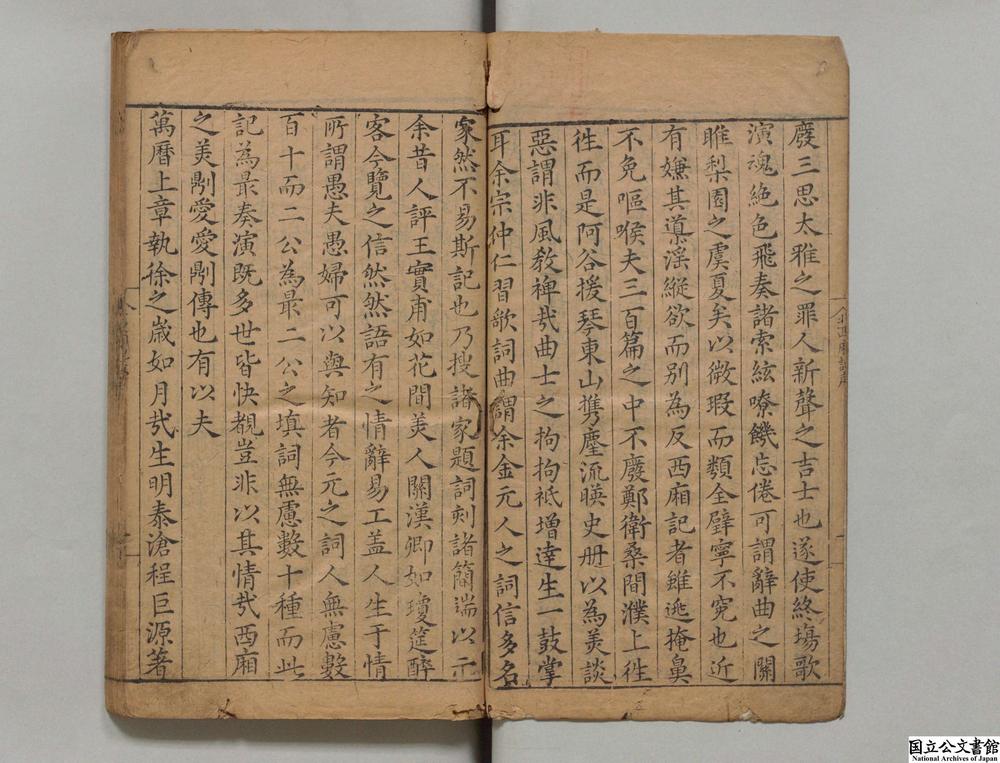 廢三思太雅之罪人新聲之吉士也遂使終場歌
演魂絶色飛奏諸索絃嘹饑忘倦可謂辭曲之關
雎梨園之虞夏矣以微瑕而纇全璧寧不寃也近
有嫌其道滛縱欲而别為反西廂記者雖逃掩鼻
不免嘔喉夫三百篇之中不廢鄭衛桑間濮上徃
徃而是阿谷援琴東山携麈流暎史册以為羙談
惡謂非風敎裨㢤曲士之拘拘祗增達生一鼓掌
耳余宗仲仁習歌詞曲謂余金元人之詞信多名
家然不易斯記也乃搜諸家題詞刻諸簡端以示
余昔人評王實甫如花間羙人關漢卿如瓊筵醉
客今覽之信然然語有之情辭易工盖人生于情
所謂愚夫愚婦可以與知者今元之詞人無慮數
百十而二公為最二公之填詞無慮數十種而此
記為最奏演既多世皆快覩豈非以其情㢤西廂
之美則愛愛則傳也有以夫
萬曆上章執徐之歲如月㢤生明泰滄程巨源著
国立公文書館
National Archives of Japan